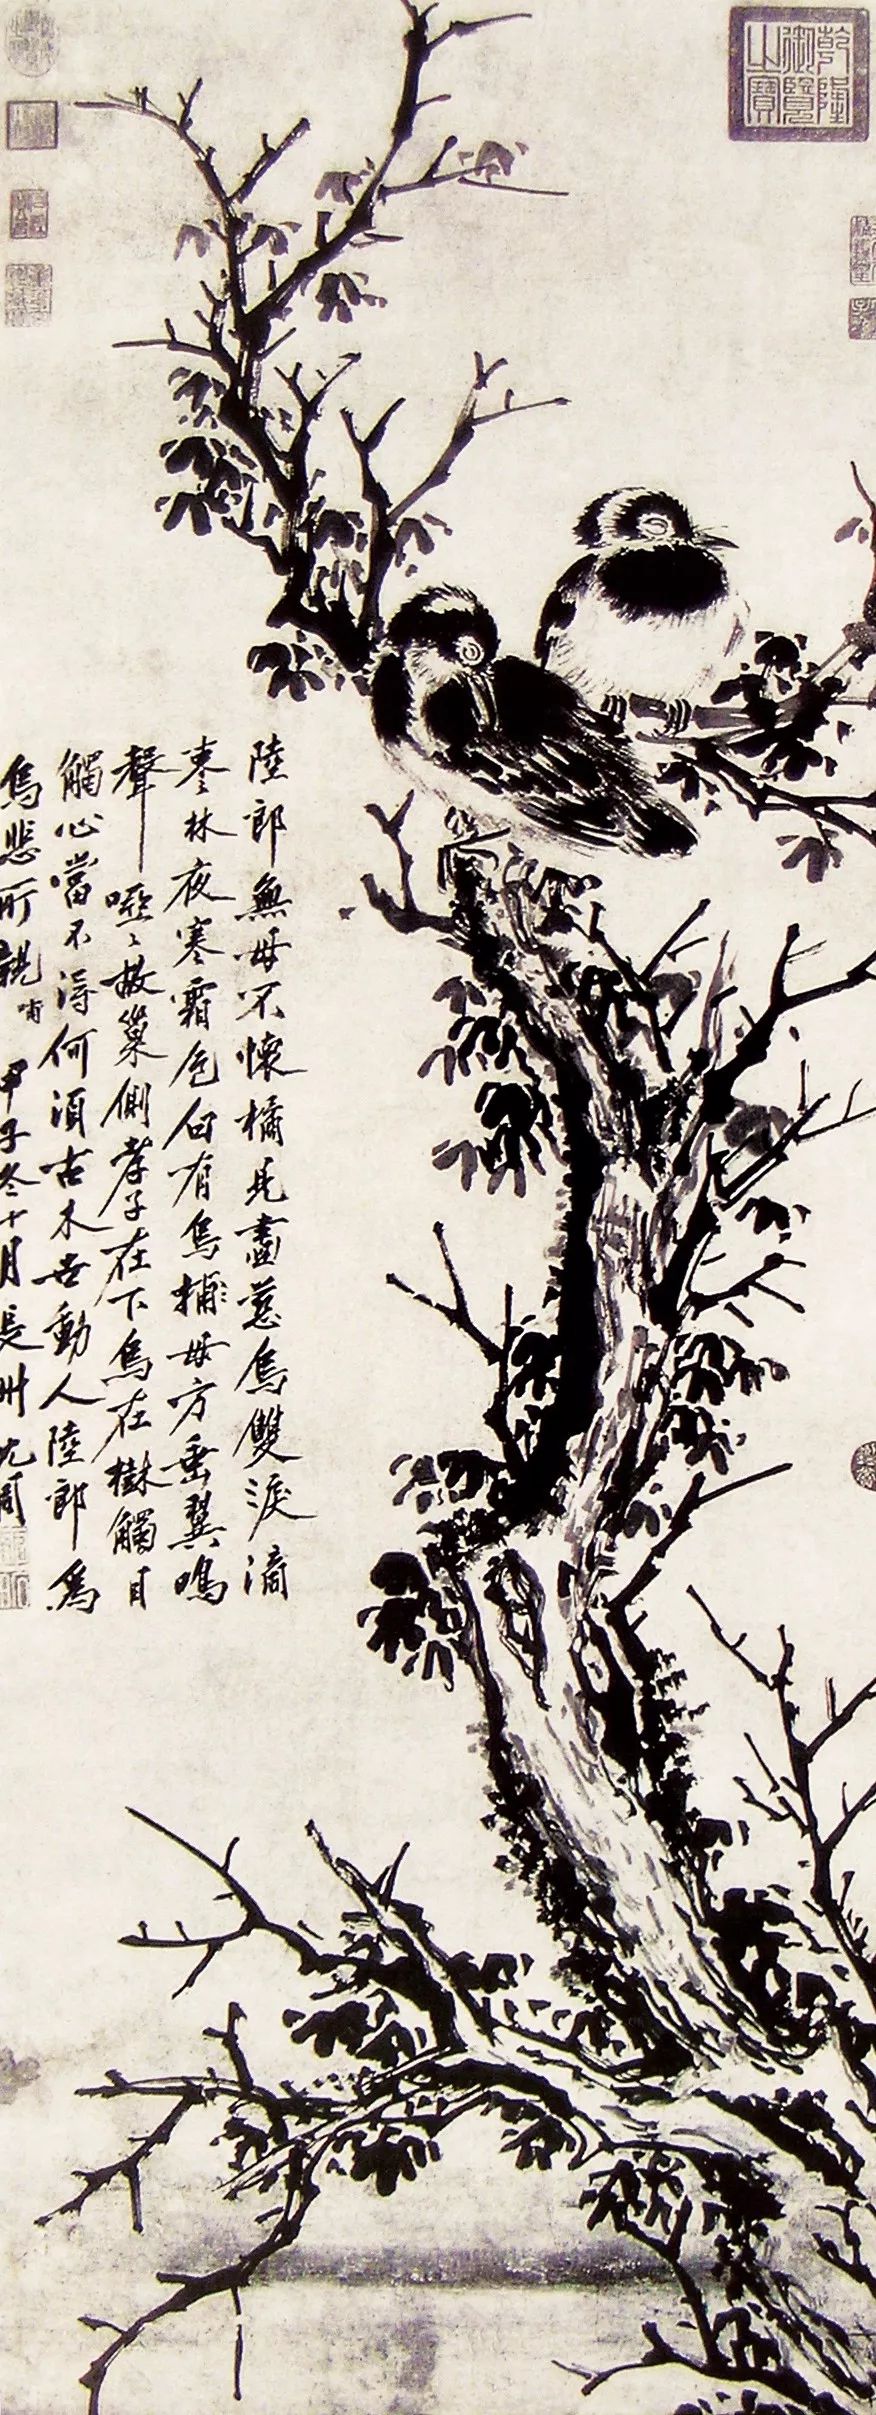 乾隆御覽之寶
陸郎無母不懷橘見畫慈烏雙淚滴
枣林夜寒霜色白有烏捕母方垂翼鳴
聲啞〻故巢側孝子在下烏在樹觸目
觸心當不得何須古木世動人陸郎為
烏悲所親 哺 甲子冬十月長洲沈周